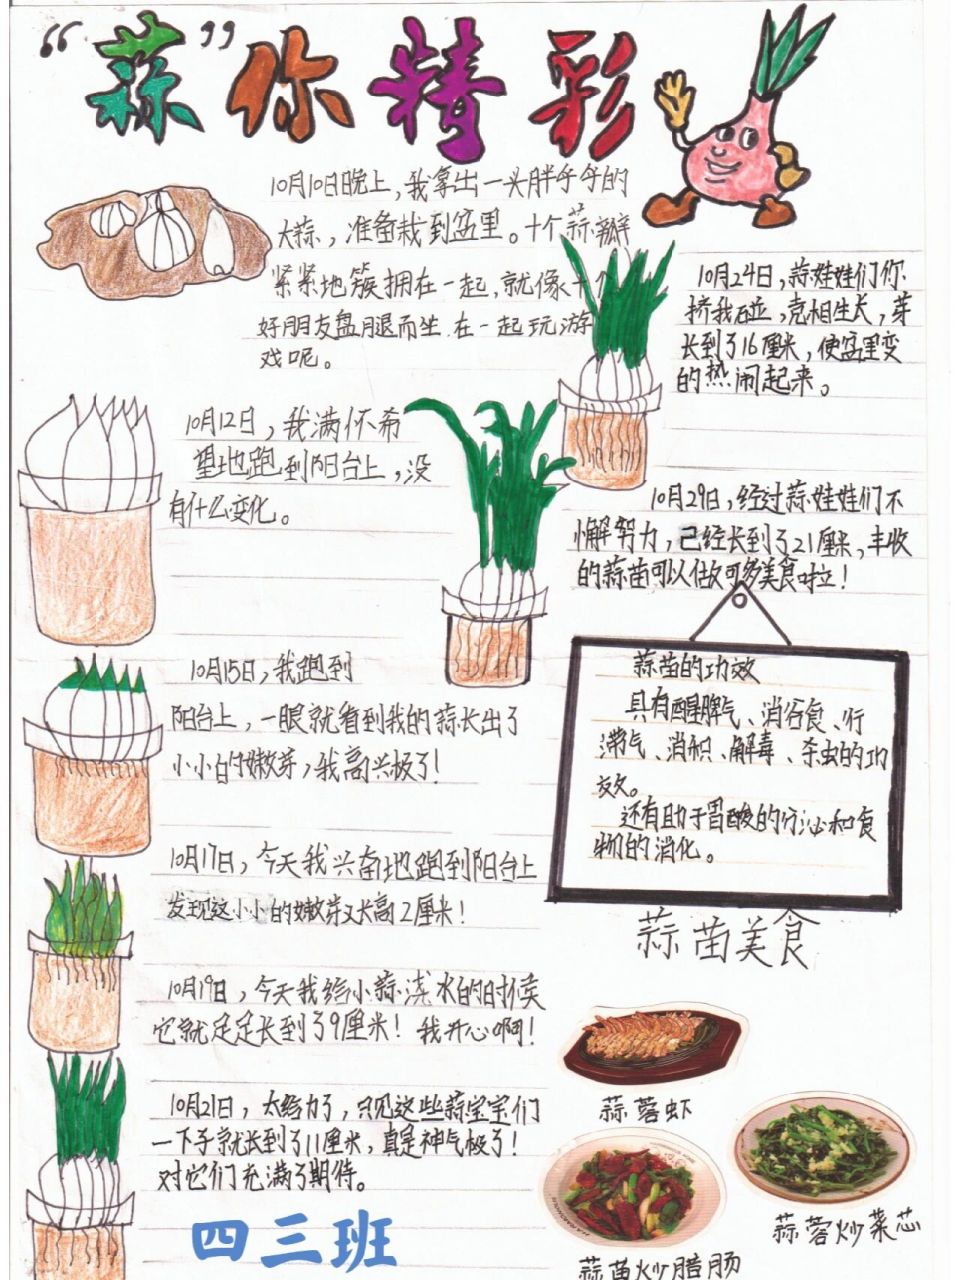 “蒜”你精彩
10月10日晚上，我拿出一头胖乎乎的
大蒜，准备栽到盆里。十个蒜瓣
紧紧地簇拥在一起，就像十个
好朋友盘腿而坐在一起玩游
戏呢。
10月12日，我满怀希
望地跑到阳台上，没
有什么变化。
10月15日，我跑到
阳台上，一眼就看到我的蒜长出了
小小的嫩芽，我高兴极了！
10月17日，今天我兴奋地跑到阳台上
发现这小小的嫩芽又长高2厘米！
10月19日，今天我给小蒜浇水的时候
它就足足长到了9厘米！我开心啊！
10月21日，太给力了，只见这些蒜宝宝们
一下子就长到了11厘米，真是神气极了！
对它们充满了期待。
四三班
10月24日，蒜娃娃们你
挤我碰，竞相生长，芽
长到了16厘米，使盆里变
的热闹起来。
10月29日，经过蒜娃娃们不
懈努力，已经长到了21厘米，丰收
的蒜苗可以做可多美食啦！
蒜苗的功效
具有醒脾气、消谷食、行
滞气、消积、解毒、杀虫的功
效。
还有助于胃酸的分泌和食
物的消化。
蒜苗美食
蒜蓉虾
蒜蓉炒菜芯
蒜苗炒腊肠